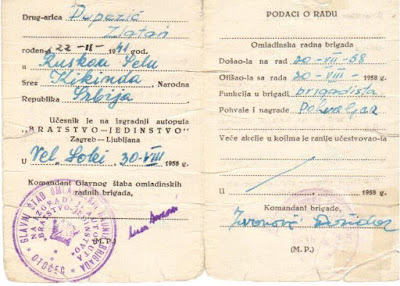 Drug-arica Popazić
Zlatan
rođen-a 22-II-1941 god.
u Ruskom Selu
Srez Kikinda, Narodna
Republika Srbija
Učesnik je na izgradnji autoputa
"BRATSTVO-JEDINSTVO"
Zagreb—Ljubljana
U Vel. Loki 30-VIII 1958 g.
Komandant Glavnog štaba omladinskih
radnih brigada,
(M.P.)
GLAVNI ŠTAB OMLADINSKIH RADNIH BRIGADA
NA IZGRADNJI AUTOPUTA
BRATSTVO-JEDINSTVO
OTOČEC
PODACI O RADU
Omladinska radna brigada
Došao-la na rad 20-VII-58
Otišao-la sa rada 30-VIII- 1958 g.
Funkcija u brigadi brigadista
Pohvale i nagrade Pohvaljen
Veće akcije u kojima je ranije učestvovao-la
U 1958 g.
Komandant brigade,
(M. P.)